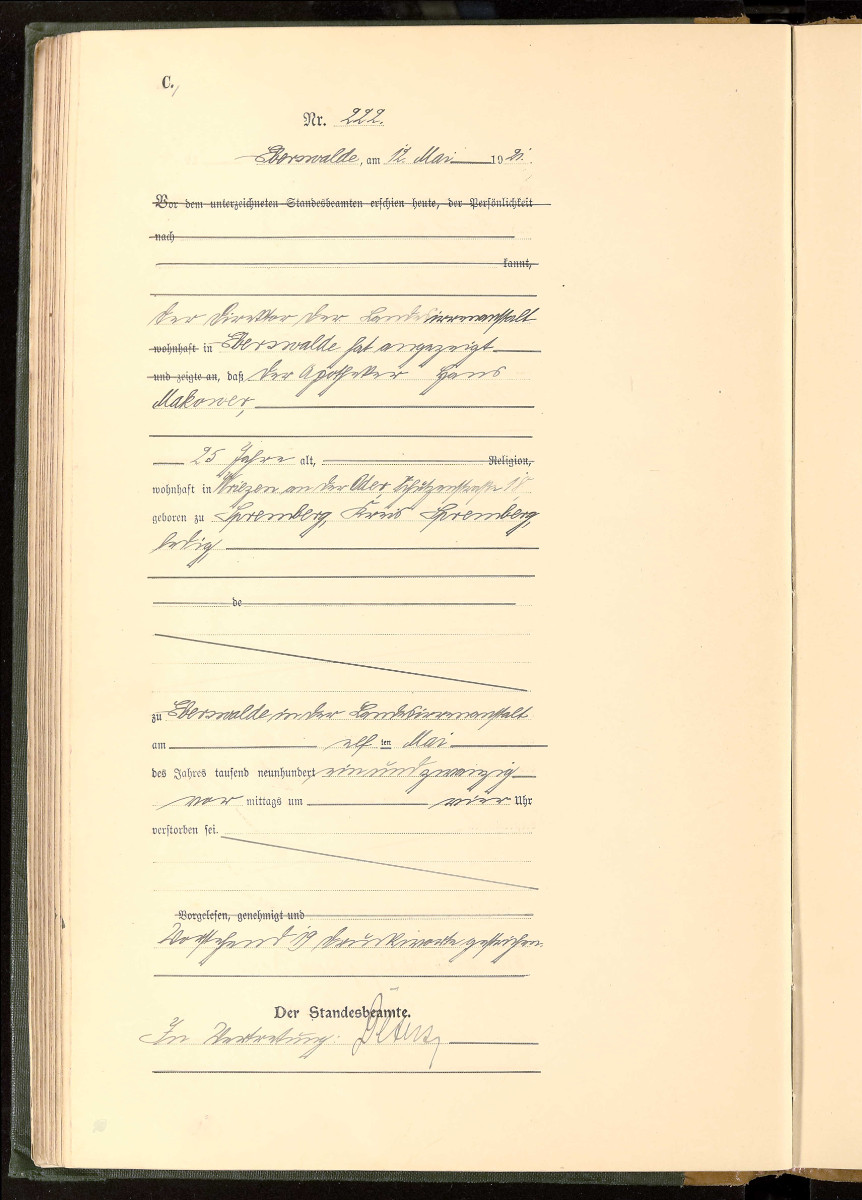 C.
Nr. 222.
Eberswalde, am 12. Mai 1921.
Vor dem unterzeichneten Standesbeamten erschien heute, der Persönlichkeit
nach
kannt,
Der Direktor der Landesirrenanstalt
wohnhaft in Eberswalde hat angezeigt
und zeigte an, daß der Apotheker Hans
Makower,
25 Jahre alt, Religion,
wohnhaft in Wriezen an der Oder, Schützenstraße 18
geboren zu Spremberg, Kreis Spremberg,
ledig,
de
zu Eberswalde in der Landesirrenanstalt
am elf ten Mai
des Jahres tausend neunhundert ein und zwanzig
vor mittags um vier Uhr
verstorben sei.
Vorgelesen, genehmigt und
Vorstehend 19 Druckworte gestrichen.
Der Standesbeamte.
In Vertretung: